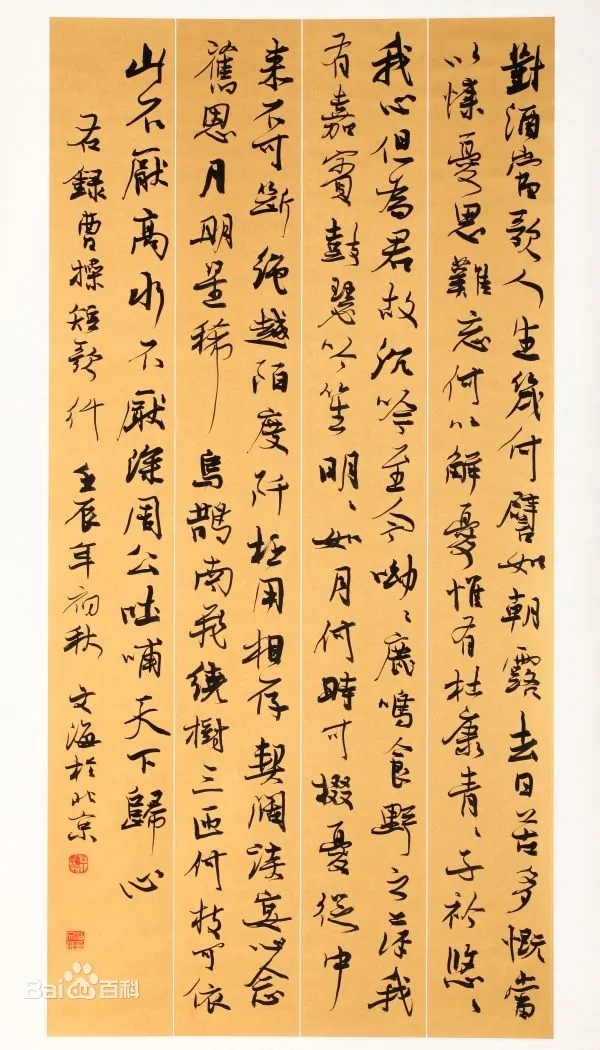 對酒當歌人生幾何譬如朝露去日苦多慨當
以慷憂思難忘何以解憂惟有杜康青〻子衿悠〻
我心但為君故沉吟至今呦〻鹿鳴食野之苹我
有嘉賓鼓瑟吹笙明〻如月何時可掇憂從中
來不可斷絕越陌度阡枉用相存契闊談宴心念
舊恩月明星稀烏鵲南飛繞樹三匝何枝可依
山不厭高水不厭深周公吐哺天下歸心
右錄曹操短歌行 壬辰年初秋 文海於北京
Bai百科